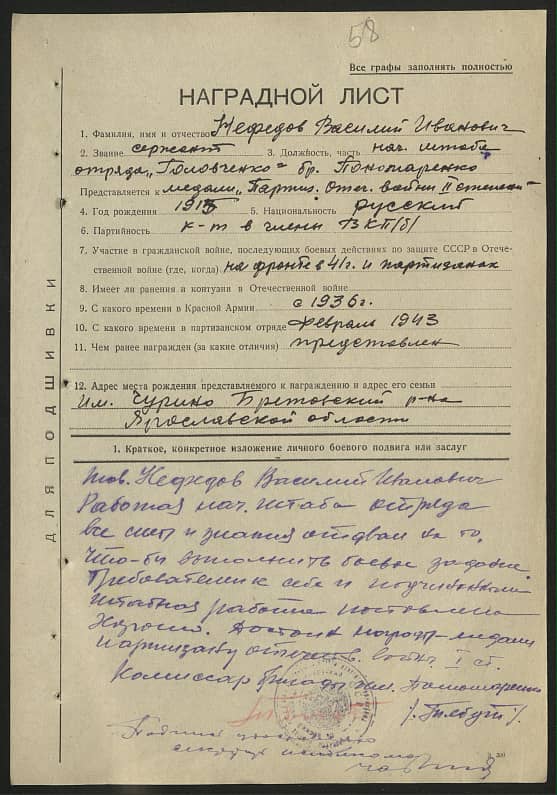 58
Все графы заполнять полностью
НАГРАДНОЙ ЛИСТ
1. Фамилия, имя и отчество Нефедов Василий Иванович
2. Звание сержант 3. Должность, часть нач. штаба
отряда „Головченко" бр. Пономаренко
Представляется к медали „Партиз. Отеч. войны II степени"
4. Год рождения 1915 5. Национальность русский
6. Партийность к-т в члены ВКП/б/
7. Участие в гражданской войне, последующих боевых действиях по защите СССР в Отече-
ственной войне (где, когда) на фронте в 41 г. и партизанах
8. Имеет ли ранения и контузии в Отечественной войне
9. С какого времени в Красной Армии с 1936 г.
10. С какого времени в партизанском отряде февраль 1943
11. Чем ранее награжден (за какие отличия) представлен
12. Адрес места рождения представляемого к награждению и адрес его семьи
им. Чурино Брейтовский р-на
Ярославской области
ДЛЯ ПОДШИВКИ
1. Краткое, конкретное изложение личного боевого подвига или заслуг
тов. Нефедов Василий Иванович
Работая нач. штаба отряда
все силы и знания отдавал на то,
что-бы выполнить боевые задачи.
Требователен к себе и подчиненным
штабная работа поставлена
хорошо. Достоин медали
партизану отечеств. войны I ст.
Комиссар бригады им. Пономаренко